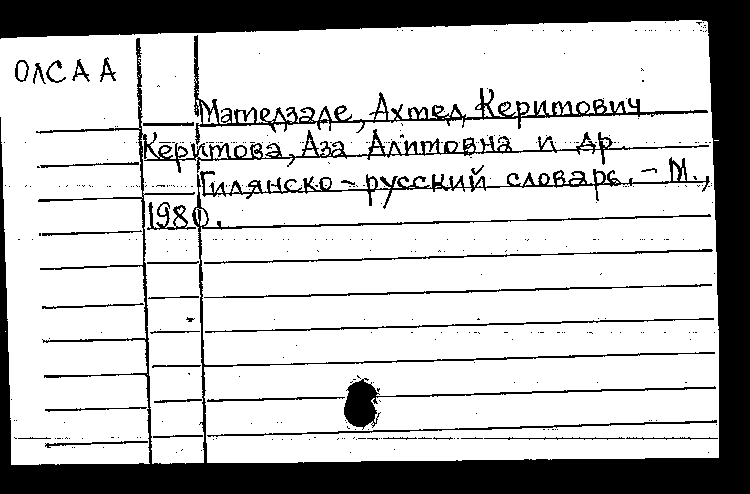 ОЛСАА
Мамедзаде, Ахмед Керимович
Керимова, Аза Алимовна и др.
Гилянско-русский словарь. - М.,
1980.